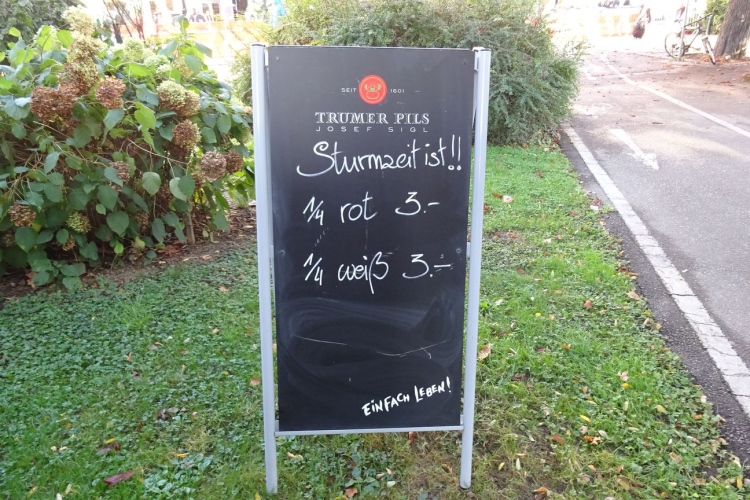 SEIT 1601
TRUMER PILS
JOSEF SIGL
Sturmzeit ist!!
1/4 rot 3.-
1/4 weiß 3.-
EINFACH LEBEN!